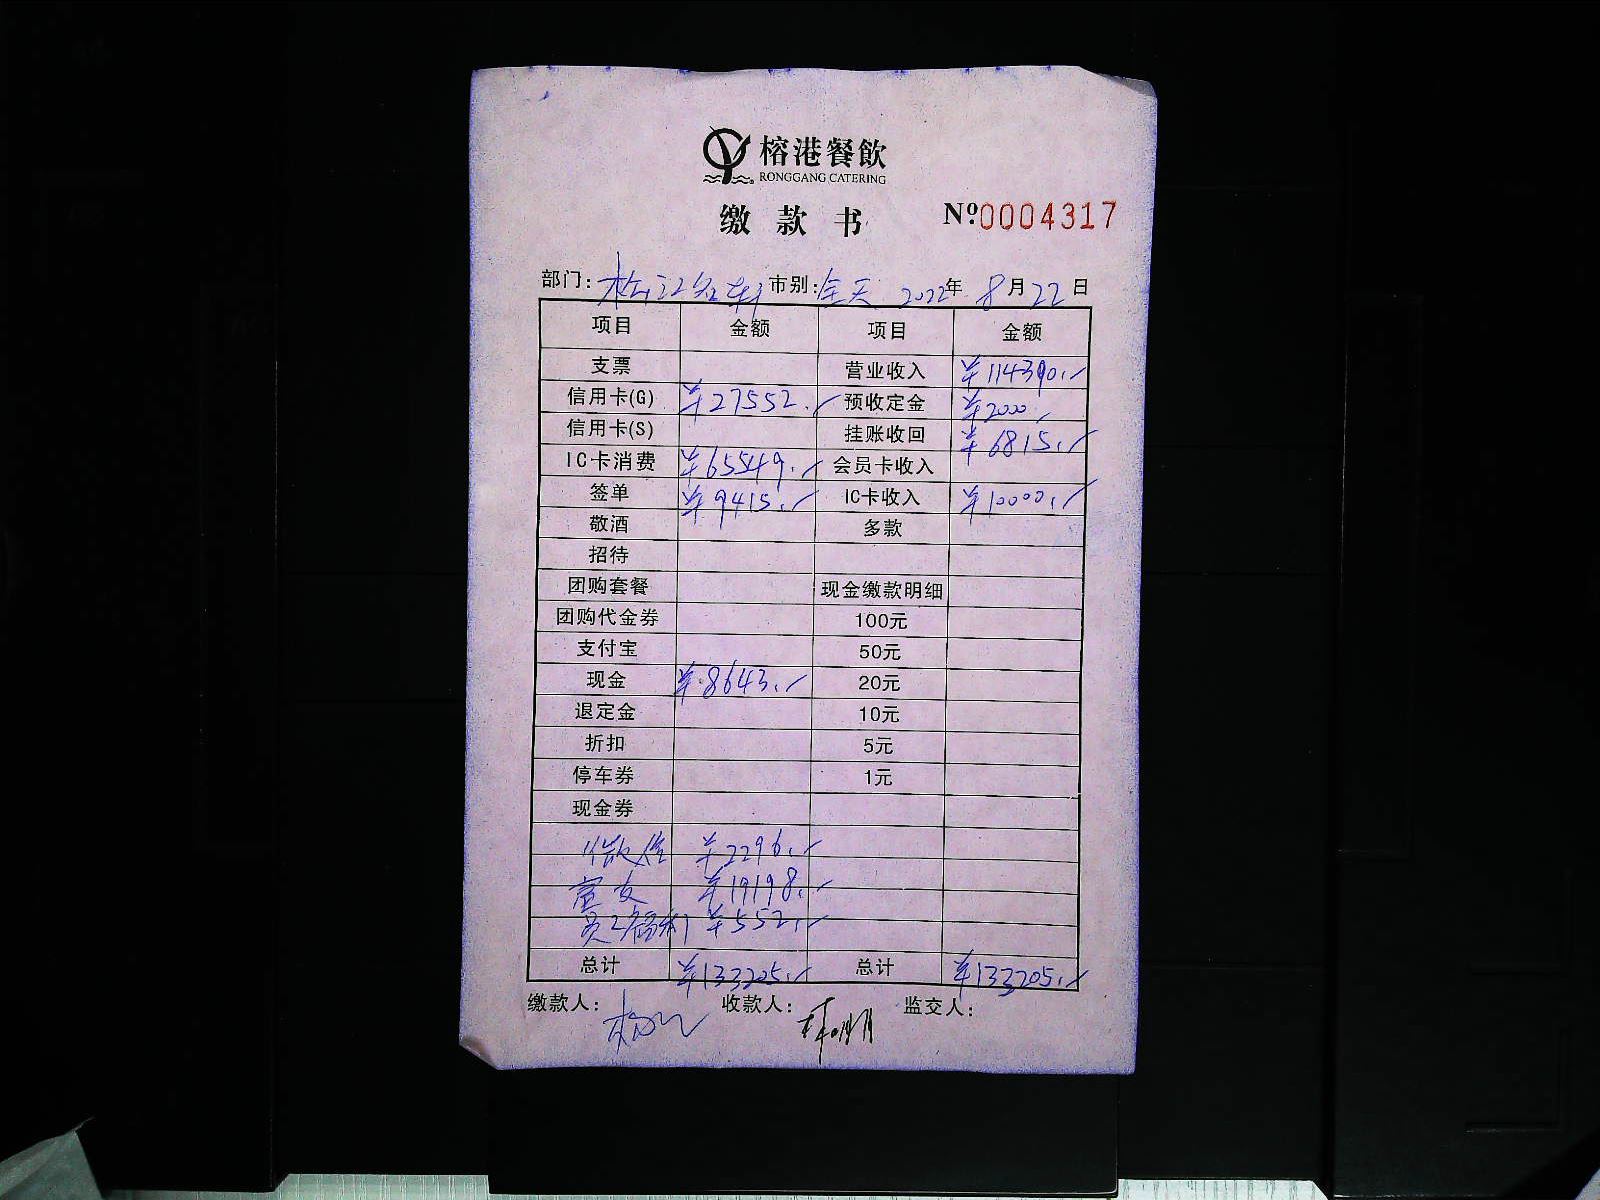 榕港餐飲
RONGGANG CATERING
缴款书 Nº0004317
部门: 松江 市别: 全天 2022年 8月22日
项目 金额 项目 金额
支票 营业收入 ¥114390.
信用卡(G) ¥27552. 预收定金 ¥2000.
信用卡(S) 挂账收回 ¥6815.
IC卡消费 ¥65549. 会员卡收入
签单 ¥9415. IC卡收入 ¥10000.
敬酒 多款
招待
团购套餐 现金缴款明细
团购代金券 100元
支付宝 50元
现金 ¥8643. 20元
退定金 10元
折扣 5元
停车券 1元
现金券
微信 ¥2296.
¥19198.
员工福利 ¥552.
总计 ¥133205. 总计 ¥133205.
缴款人: 收款人: 监交人: